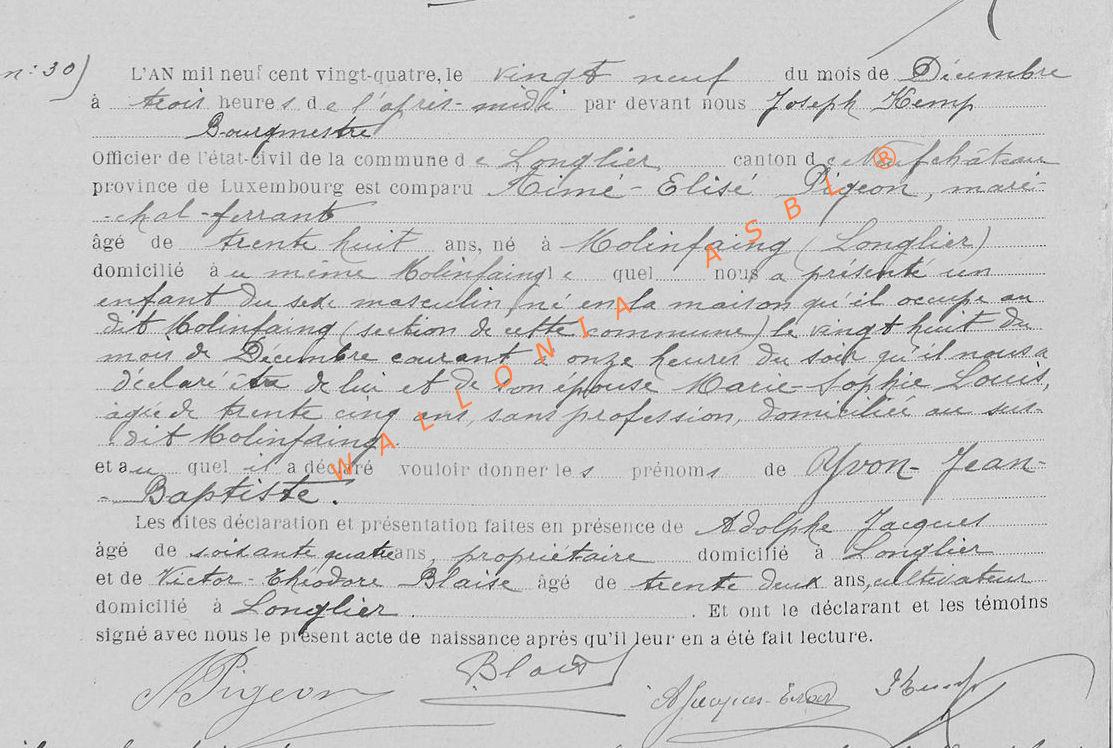 n° 30)
L'AN mil neuf cent vingt-quatre, le vingt neuf du mois de Décembre
à trois heures de l'après-midi par devant nous Joseph Kemp
Bourgmestre
Officier de l'état-civil de la commune de Longlier, canton de Neufchâteau
province de Luxembourg est comparu Aimé-Elisé Pigeon, maré-
-chal-ferrant
âgé de trente huit ans, né à Molinfaing (Longlier)
domicilié au même Molinfaing le quel nous a présenté un
enfant du sexe masculin, né en la maison qu'il occupe au
dit Molinfaing (section de cette commune) le vingt huit du
mois de Décembre courant à onze heures du soir qu'il nous a
déclaré être de lui et de son épouse Marie-Sophie Louis,
agée de trente cinq ans, sans profession, domiciliée au sus-
dit Molinfaing.
et au quel il a déclaré vouloir donner les prénoms de Yvon-Jean-
-Baptiste.
Les dites déclaration et présentation faites en présence de Adolphe Jacques
âgé de soixante quatre ans, propriétaire domicilié à Longlier
et de Victor-Théodore Blaise âgé de trente deux ans, cultivateur
domicilié à Longlier. Et ont le déclarant et les témoins
signé avec nous le présent acte de naissance après qu'il leur en a été fait lecture.
A Pigeon Blaise A Jacques- J Kemp
WALLONIA ASBL ®